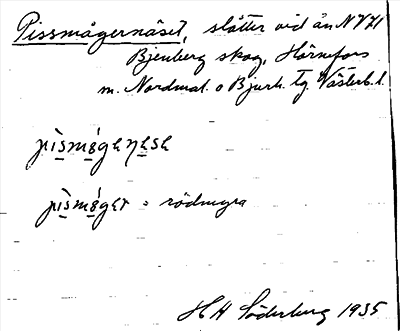 Pissmågernäset, slåtter vid ån NV H
Bjenberg skog, Hörnefors
m. Nordmal. o Bjurh. tg. Västerb. l.
pìsmǿgeṇese
pìsmǿger = rödmyra
H H Söderberg 1935